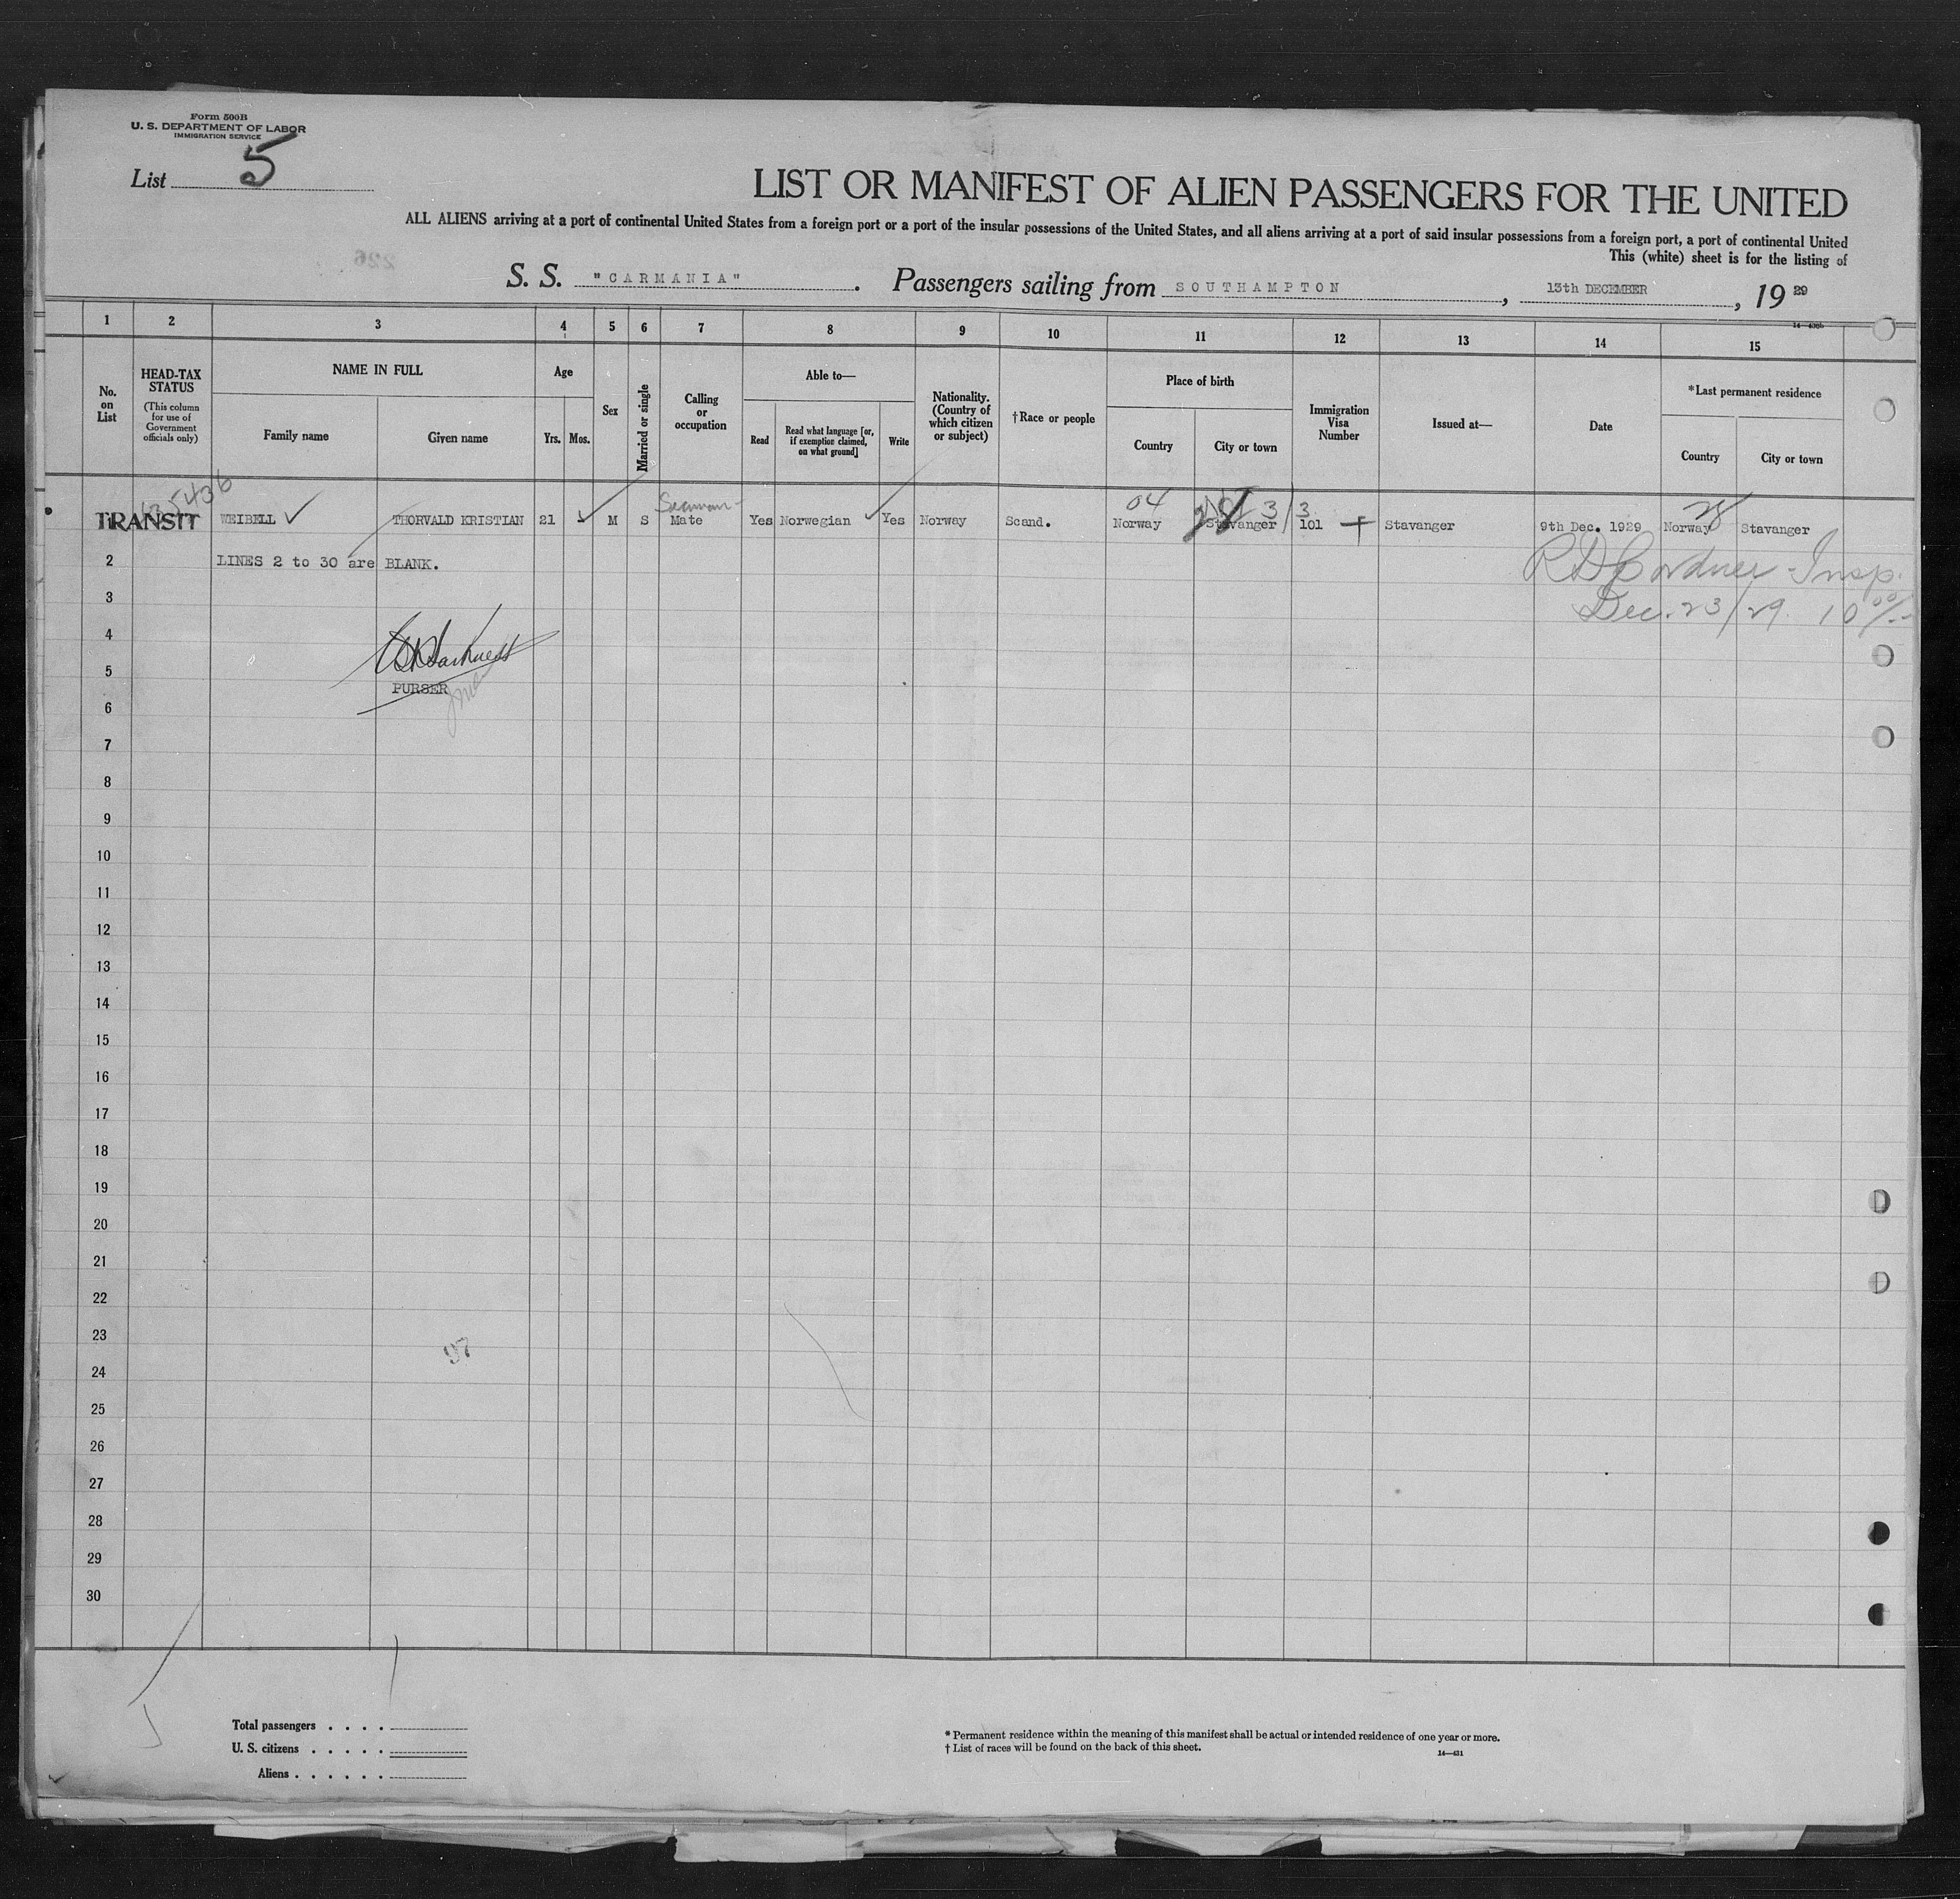 Form 500B
U. S. DEPARTMENT OF LABOR
IMMIGRATION SERVICE
List 5
LIST OR MANIFEST OF ALIEN PASSENGERS FOR THE UNITED
ALL ALIENS arriving at a port of continental United States from a foreign port or a port of the insular possessions of the United States, and all aliens arriving at a port of said insular possessions from a foreign port, a port of continental United
This (white) sheet is for the listing of
226
S. S. "CARMANIA". Passengers sailing from SOUTHAMPTON, 13th DECEMBER, 19 29
1 2 3 4 5 6 7 8 9 10 11 12 13 14 15
No. on List
HEAD-TAX STATUS
(This column for use of Government officials only)
NAME IN FULL
Family name
Given name
Age
Yrs. Mos.
Sex
Married or single
Calling or occupation
Able to—
Read
Read what language [or, if exemption claimed, on what ground]
Write
Nationality. (Country of which citizen or subject)
†Race or people
Place of birth
Country
City or town
Immigration Visa Number
Issued at—
Date
*Last permanent residence
Country
City or town
Seaman- 04 3/3
TRANSIT WEIBELL THORVALD KRISTIAN 21 M S Mate Yes Norwegian Yes Norway Scand. Norway Stavanger 101 Stavanger 9th Dec. 1929 Norway Stavanger
2 LINES 2 to 30 are BLANK.
Insp.
3
Dec. 23/29.
4
5
PURSER
6
7
8
9
10
11
12
13
14
15
16
17
18
19
20
21
22
23
97
24
25
26
27
28
29
30
Total passengers . . . .
U. S. citizens . . . . .
Aliens . . . . . .
* Permanent residence within the meaning of this manifest shall be actual or intended residence of one year or more.
† List of races will be found on the back of this sheet.
14—431